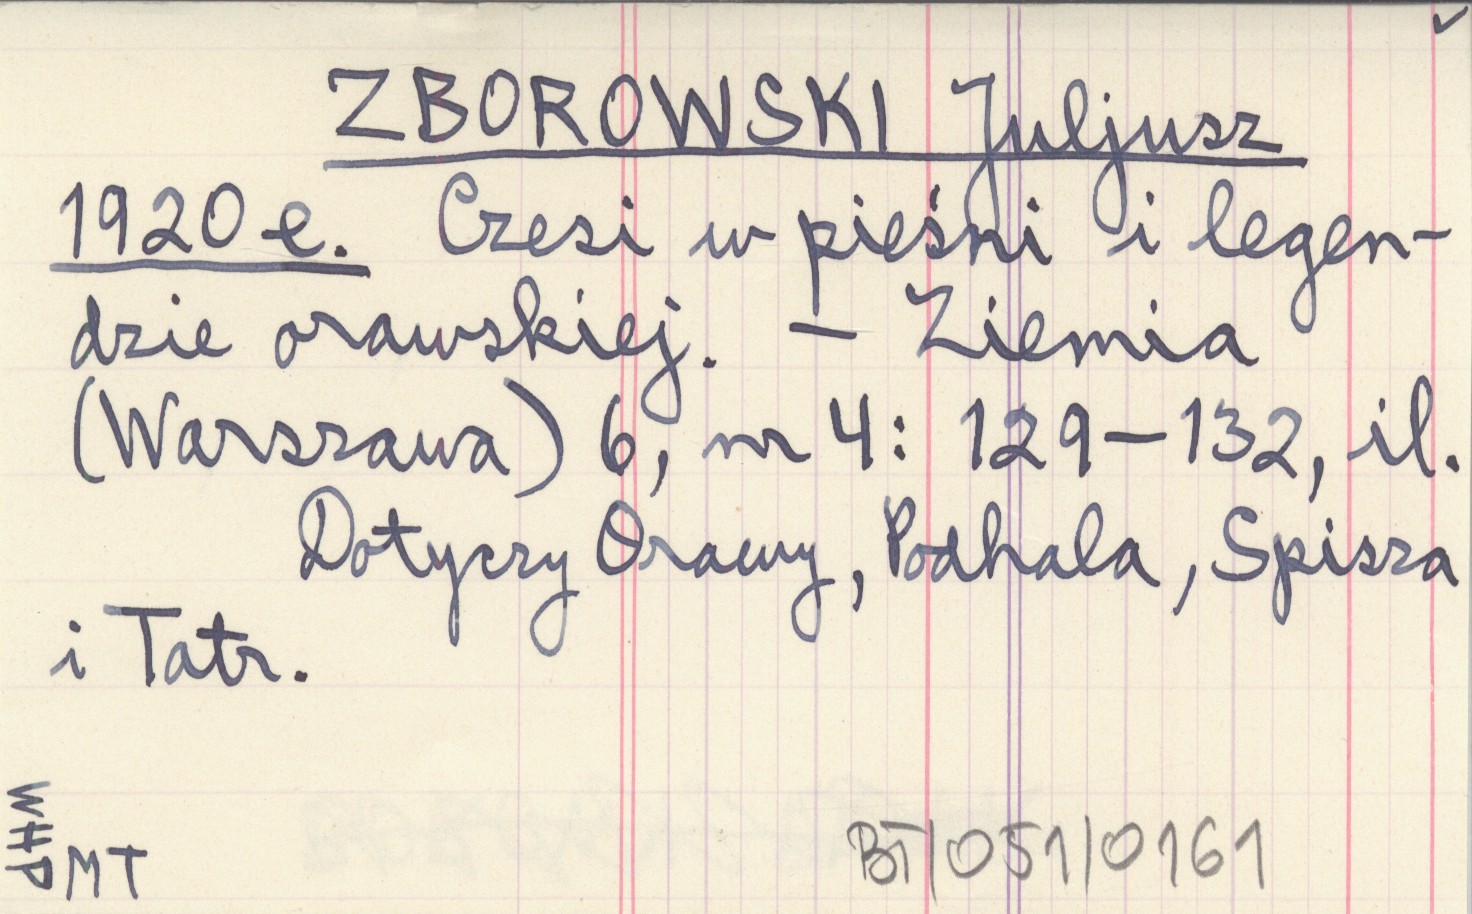 ZBOROWSKI Juljusz
1920 e. Czesi w pieśni i legen-
dzie orawskiej. — Ziemia
(Warszawa) 6, nr 4: 129–132, il.
Dotyczy Orawy, Podhala, Spisza
i Tatr.
WHP
MT
BT/051/0161